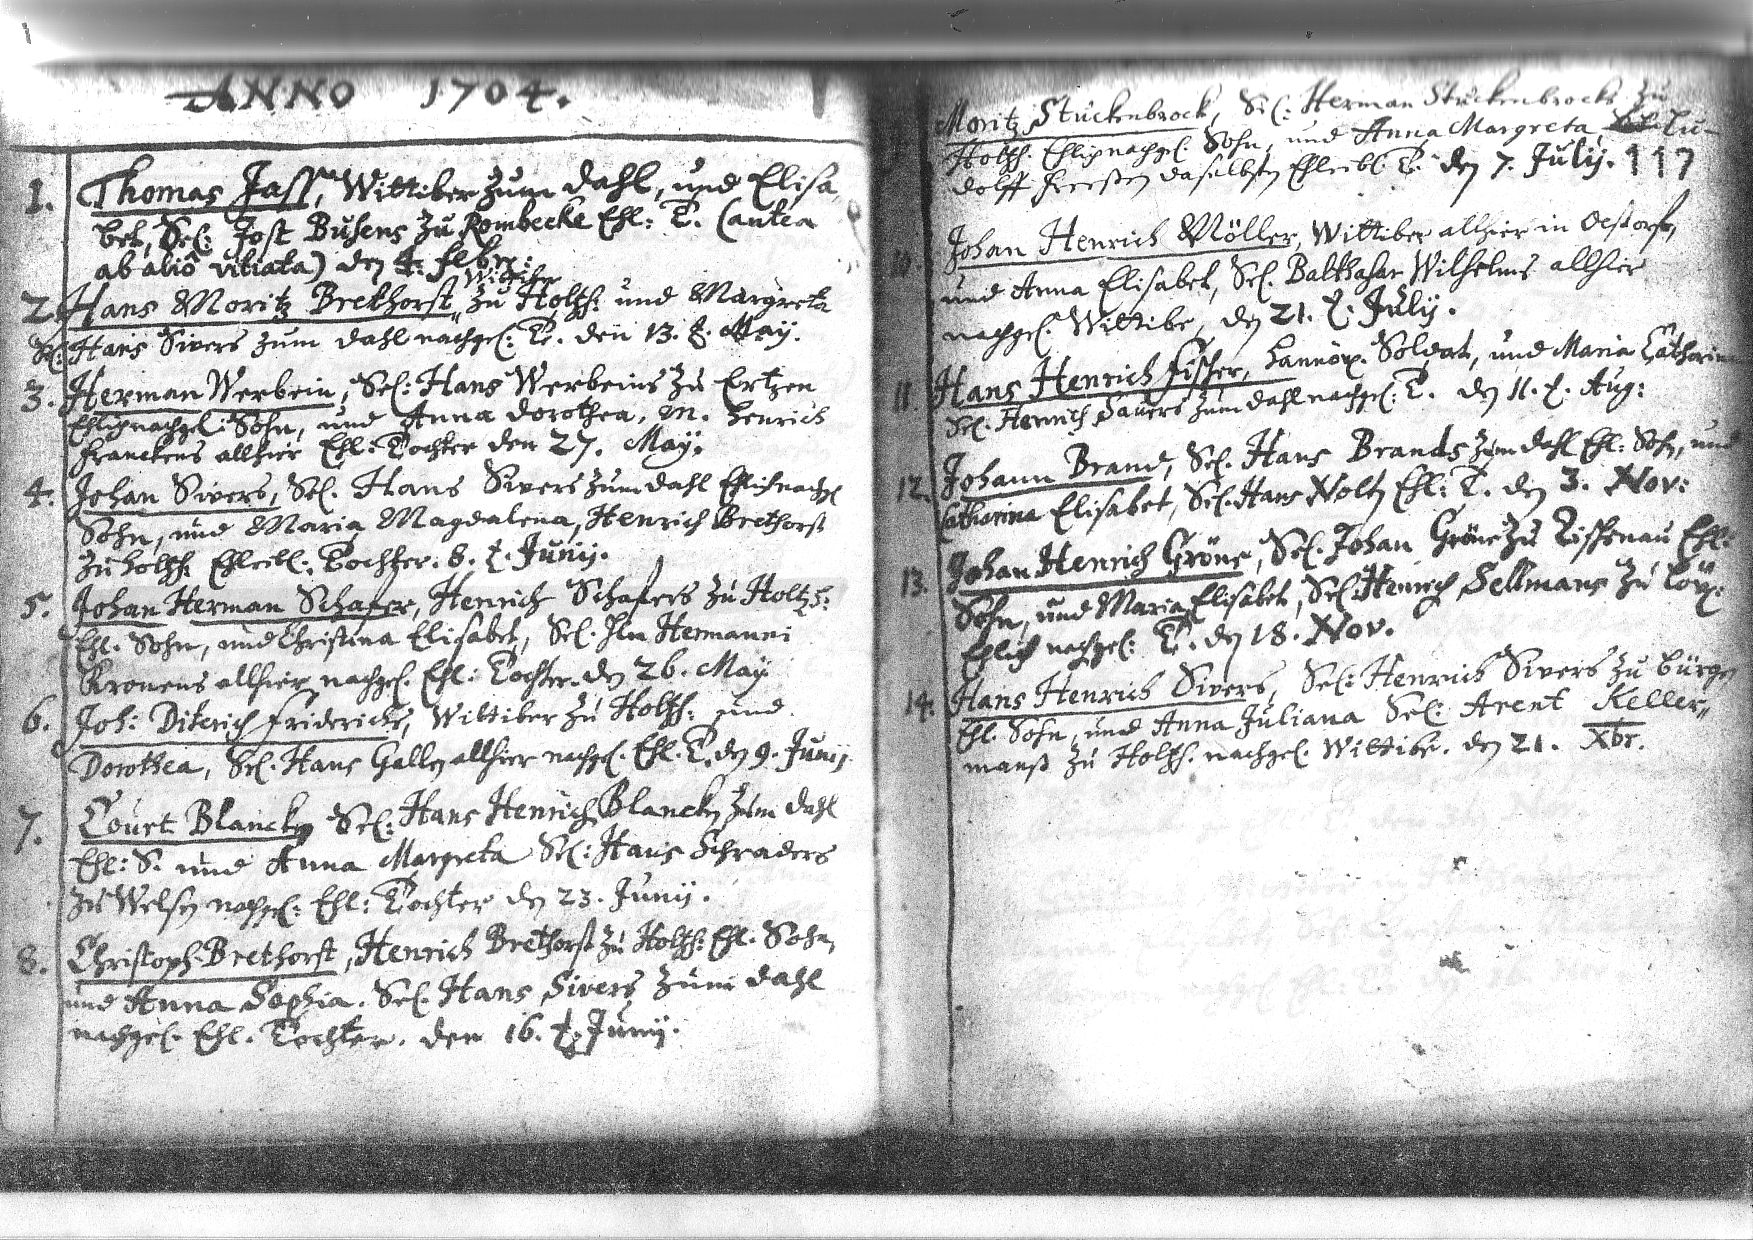 ANNO 1704.
1. Thomas Jass, Wittiber zum Dahl, und Elisa-
bet, Sel: Jost Busens zu Rombecke Ehl: T. (antea
ab aliô vitiata) den 4. Febr:
Wittiber
2. Hans Moritz Brethorst, zu Holtzh: und Margreta
Sel: Hans Sivers zum Dahl nachgel: T. den 13. t. May.
3. Herman Werbein, Sel: Hans Werbeins zu Ertzen
Ehlig nachgel: Sohn, und Anna Dorothea, M. Henrich
Franckens allhier Ehl: Tochter den 27. May.
4. Johan Sivers, Sel. Hans Sivers zum Dahl Ehlich nachgel
Sohn, und Maria Magdalena, Henrich Brethorst
zu Holtzh: Ehleibl: Tochter. 8. t. Junij.
5. Johan Herman Schafer, Henrich Schafers zu Holtzh:
Ehl. Sohn, und Christina Elisabet, Sel. Hn Hermanni
Kronens allhier nachgel. Ehl: Tochter. den 26. May
6. Joh: Diterich Fridericke, Wittiber zu Holtzh: und
Dorothea, Sel. Hans Gallen allhier nachgel. Ehl. T. den 9. Junij.
7. Court Blancken Sel: Hans Henrich Blancken zum Dahl
Ehl: S. und Anna Margreta Sel: Hans Schraders
zu Welsen nachgel: Ehl: Tochter den 23. Junij.
8. Christoph Brethorst, Henrich Brethorst zu Holtzh: Ehl: Sohn,
und Anna Sophia. Sel. Hans Sivers zum Dahl
nachgel. Ehl. Tochter. den 16. t. Junij.
Moritz Stuckenbrock, Sel: Herman Stuckenbrocks zu
Holtzh. Ehlig nachgel. Sohn, und Anna Margreta Lu-
dolff daselbsten Ehleibl. T. den 7. July. 117
Johan Henrich Möller, Wittiber allhier in Oesdorff,
und Anna Elisabet, Sel. Balthasar Wilhelms allhier
nachgel. Wittibe, den 21. t. July.
11 Hans Henrich Fischer, Hannöv. Soldat, und Maria Catharina
Sel. Henrich Sauers zum Dahl nachgel: T. den 11. t. Aug:
12. Johann Brand, Sel. Hans Brands zum Dahl Ehl: Sohn, und
Catharina Elisabet, Sel. Hans Nolten Ehl: T. den 3. Nov:
13. Johan Henrich Gröne, Sel. Johan Gröne zu Ehl:
Sohn, und Maria Elisabet, Sel. Henrich Sellmans zu
Ehlich nachgel: T. den 18. Nov.
14. Hans Henrich Sivers, Sel: Henrich Sivers zu
Ehl. Sohn, und Anna Juliana Sel: Arent Keller„
manß zu Holtzh. nachgel. Wittibe. den 21. Xbr.